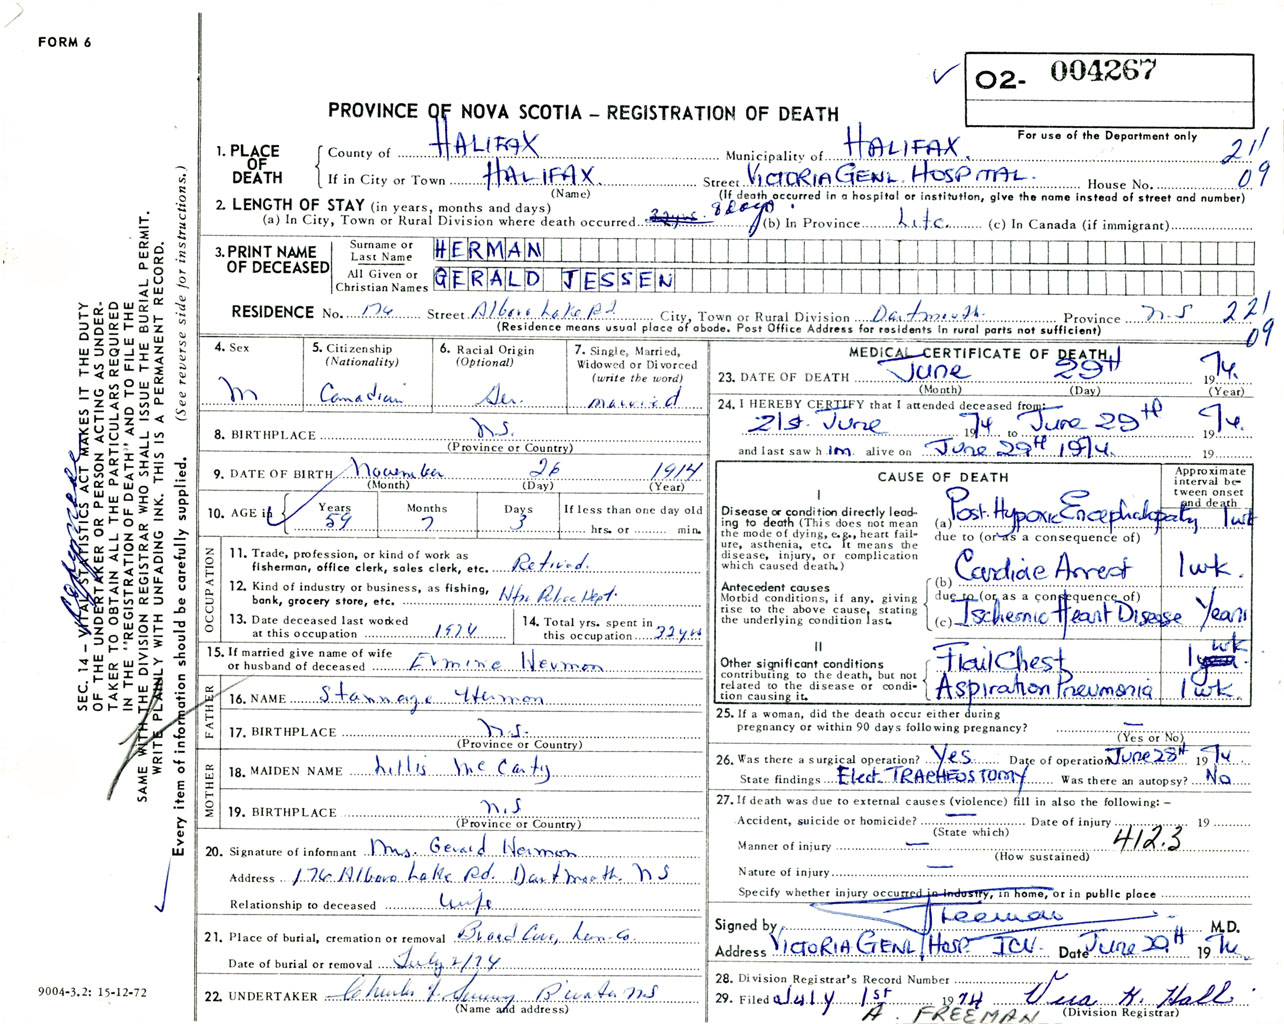 FORM 6
O2- 004267
PROVINCE OF NOVA SCOTIA – REGISTRATION OF DEATH
For use of the Department only
1. PLACE OF DEATH
County of HALIFAX Municipality of HALIFAX. 211
If in City or Town HALIFAX. Street VICTORIA GENL. HOSPITAL. House No. 09
(Name) (If death occurred in a hospital or institution, give the name instead of street and number)
2. LENGTH OF STAY (in years, months and days)
(a) In City, Town or Rural Division where death occurred 8 Days (b) In Province Life. (c) In Canada (if immigrant)
3. PRINT NAME OF DECEASED
Surname or Last Name HERMAN
All Given or Christian Names GERALD JESSEN
RESIDENCE No. 176 Street Albro Lake Rd City, Town or Rural Division Dartmouth Province N.S 221
(Residence means usual place of abode. Post Office Address for residents in rural parts not sufficient) 09
4. Sex
M
5. Citizenship
(Nationality)
Canadian
6. Racial Origin
(Optional)
Ger.
7. Single, Married,
Widowed or Divorced
(write the word)
Married
8. BIRTHPLACE N.S.
(Province or Country)
9. DATE OF BIRTH November 26 1914
(Month) (Day) (Year)
10. AGE in
Years Months Days If less than one day old
59 7 3 hrs. or min.
OCCUPATION
11. Trade, profession, or kind of work as
fisherman, office clerk, sales clerk, etc. Retired.
12. Kind of industry or business, as fishing,
bank, grocery store, etc. Hfx Police Dept.
13. Date deceased last worked
at this occupation 1974
14. Total yrs. spent in
this occupation 32 yrs
15. If married give name of wife
or husband of deceased Ermine Herman
FATHER
16. NAME Stannage Herman
17. BIRTHPLACE N.S.
(Province or Country)
MOTHER
18. MAIDEN NAME Lillis McCarty
19. BIRTHPLACE N.S
(Province or Country)
20. Signature of informant Mrs. Gerald Herman
Address 176 Albro Lake Rd. Dartmouth NS
Relationship to deceased Wife
21. Place of burial, cremation or removal Broad Cove, Lun. Co.
Date of burial or removal July 2/74
22. UNDERTAKER
(Name and address)
MEDICAL CERTIFICATE OF DEATH
23. DATE OF DEATH June 29th 1974.
(Month) (Day) (Year)
24. I HEREBY CERTIFY that I attended deceased from:
21st. June 1974 to June 29th 1974.
and last saw him. alive on June 29th 1974. 19
CAUSE OF DEATH
Approximate interval between onset and death
I
Disease or condition directly leading to death (This does not mean the mode of dying, e.g., heart failure, asthenia, etc. It means the disease, injury, or complication which caused death.)
(a) Post-Hypoxic Encephalopathy 1 wk
due to (or as a consequence of)
Antecedent causes
Morbid conditions, if any, giving rise to the above cause, stating the underlying condition last.
(b) Cardiac Arrest 1 wk.
due to (or as a consequence of)
(c) Ischemic Heart Disease Years
II
Other significant conditions
contributing to the death, but not related to the disease or condition causing it.
Flail Chest 1 wk
Aspiration Pneumonia 1 wk.
25. If a woman, did the death occur either during
pregnancy or within 90 days following pregnancy? —
(Yes or No)
26. Was there a surgical operation? Yes Date of operation June 28th 1974
State findings Elect. TRACHEOSTOMY Was there an autopsy? No
27. If death was due to external causes (violence) fill in also the following: –
Accident, suicide or homicide? — Date of injury 19
(State which) 412.3
Manner of injury —
(How sustained)
Nature of injury —
Specify whether injury occurred in industry, in home, or in public place
Signed by Freeman M.D.
Address VICTORIA GENL HOSP ICU. Date June 29th 1974.
28. Division Registrar's Record Number
29. Filed July 1st 1974 Vera H. Hall
(Division Registrar)
A. FREEMAN
SEC. 14 – VITAL STATISTICS ACT MAKES IT THE DUTY
OF THE UNDERTAKER OR PERSON ACTING AS UNDER-
TAKER TO OBTAIN ALL THE PARTICULARS REQUIRED
IN THE "REGISTRATION OF DEATH" AND TO FILE THE
SAME WITH THE DIVISION REGISTRAR WHO SHALL ISSUE THE BURIAL PERMIT.
WRITE PLAINLY WITH UNFADING INK. THIS IS A PERMANENT RECORD.
Every item of information should be carefully supplied. (See reverse side for instructions.)
9004-3.2: 15-12-72